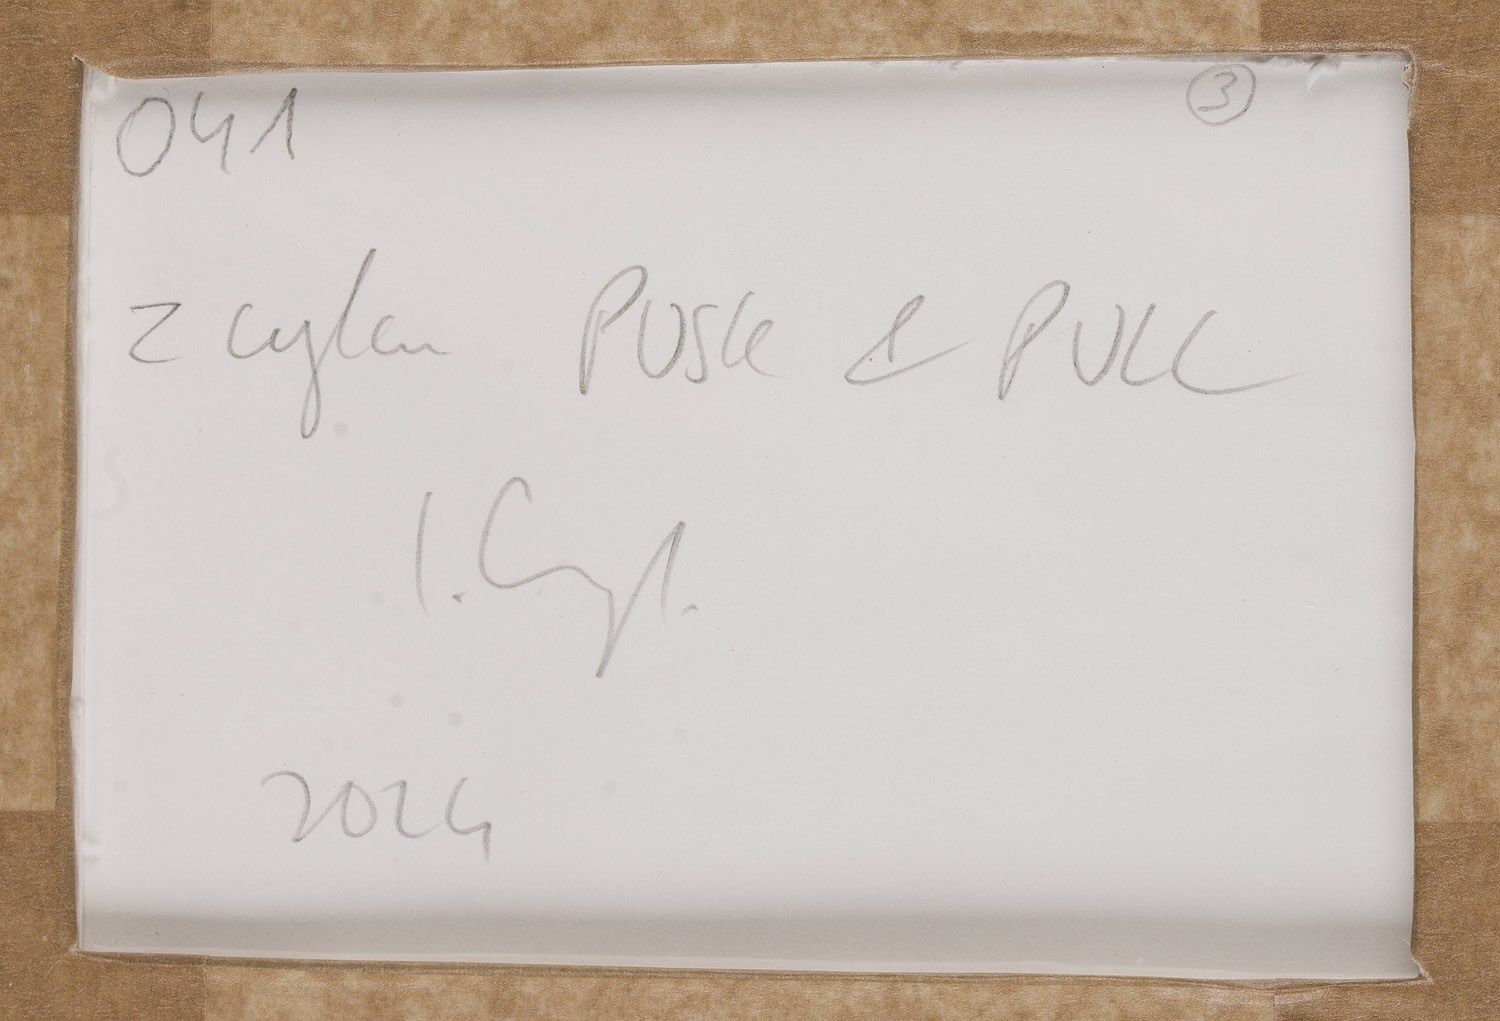 041 3
z cyklu PUSH & PULL
2024